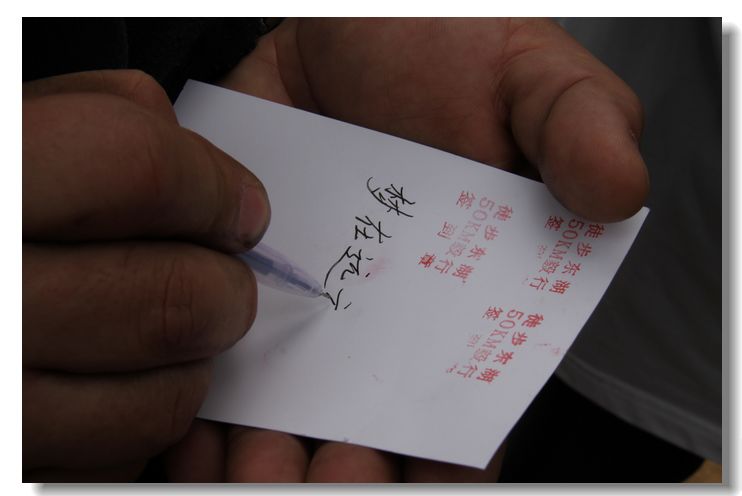 梦在远
徒步东湖
50KM毅行
签到章
徒步东湖
50KM毅行
签
徒步东湖
50KM毅行
签